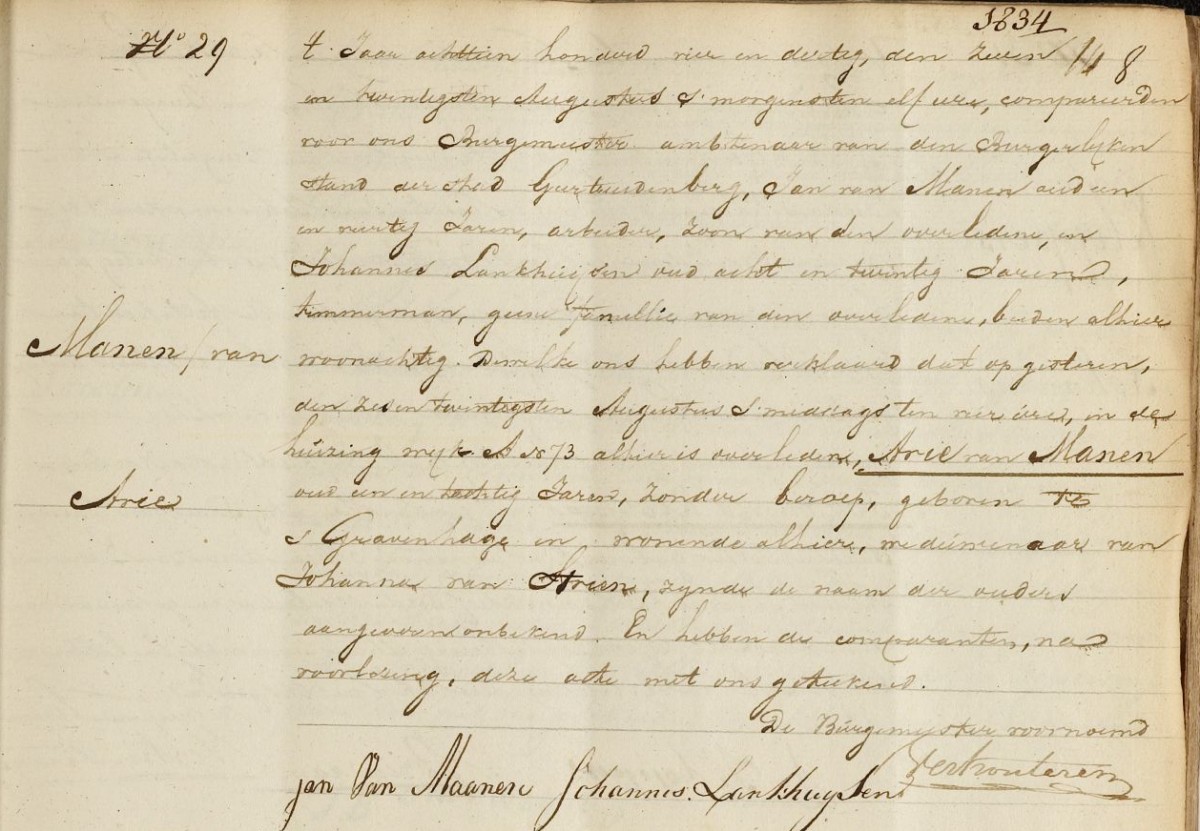 1834
No 29
't Jaar achttien honderd vier en dertig, den zeven 8
en twintigsten Augustus s'morgens ten elf ure, compareerden
voor ons Burgemeester ambtenaar van den Burgerlyken
stand der stad Geertruidenberg, Jan van Manen oud een
en veertig Jaren, arbeider, zoon van den overledene, en
Johannes Lankhuijsen oud acht en twintig Jaren,
timmerman, geene famillie van den overledene, beiden alhier
Manen / van
woonachtig. Dewelke ons hebben verklaard dat op gisteren,
den zes en twintigsten Augustus s'middags ten vier úre, in de
húizing wyk A No 73 alhier is overleden, Arie van Manen
Arie
oud een en tachtig Jaren, zonder beroep, geboren te
s Gravenhage en wonende alhier, wedúwenaar van
Johanna van Strien, zynde de naam der ouders
aangeveren onbekend. En hebben de comparanten, na
voorlezing, deze acte met ons geteekend.
De Búrgemeester voornoemd
Verhouteren
jan Van Maanen Johannes. Lankhuysen